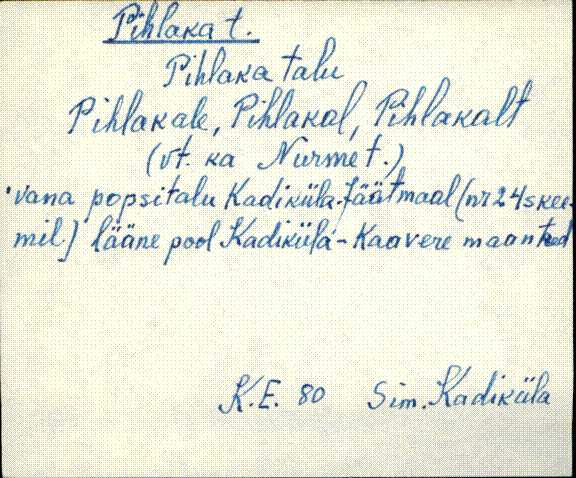 Pihlaka t.
Pihlaka talu
Pihlakale, Pihlakal, Pihlakalt
(vt. ka Nurme t.)
vana popsitalu Kadiküla Jäätmaal (nr 24 skee-
mil) lääne pool Kadiküla - Kaavere maanteed
K.E. 80 Sim. Kadiküla